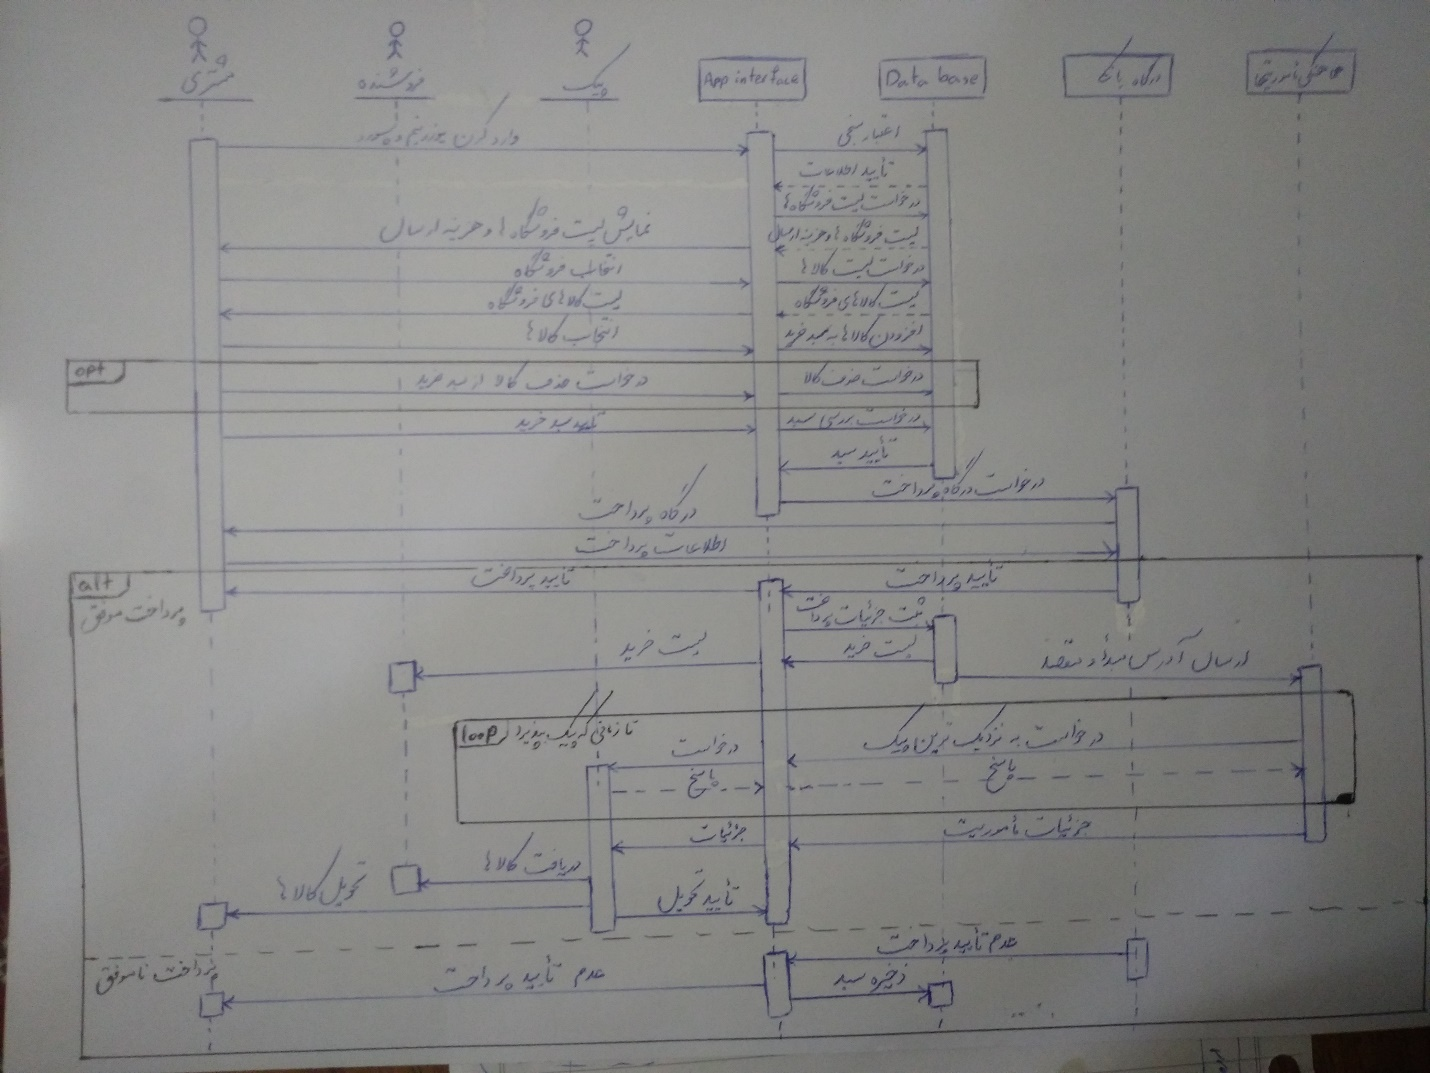 مشتری
فروشنده
پیک
App interface
Data base
درگاه بانک
وارد کردن یوزرنیم و پسورد
اعتبار سنجی
تأیید اطلاعات
درخواست لیست فروشگاه ها
نمایش لیست فروشگاه ها و هزینه ارسال
لیست فروشگاه ها و هزینه ارسال
انتخاب فروشگاه
درخواست لیست کالاها
لیست کالاهای فروشگاه
لیست کالاهای فروشگاه
انتخاب کالاها
افزودن کالاها به سبد خرید
opt
درخواست حذف کالا از سبد خرید
درخواست حذف کالا
تایید سبد خرید
درخواست بررسی سبد
تأیید سبد
درخواست درگاه پرداخت
درگاه پرداخت
اطلاعات پرداخت
alt
پرداخت موفق
تایید پرداخت
تأیید پرداخت
ثبت جزئیات پرداخت
لیست خرید
لیست خرید
ارسال آدرس مبدا و مقصد
loop
تا زمانی که پیک بپذیرد
درخواست
درخواست به نزدیک ترین پیک
پاسخ
پاسخ
جزئیات
جزئیات مأموریت
دریافت کالاها
تحویل کالاها
تأیید تحویل
پرداخت ناموفق
عدم تأیید پرداخت
عدم تأیید پرداخت
ذخیره سبد